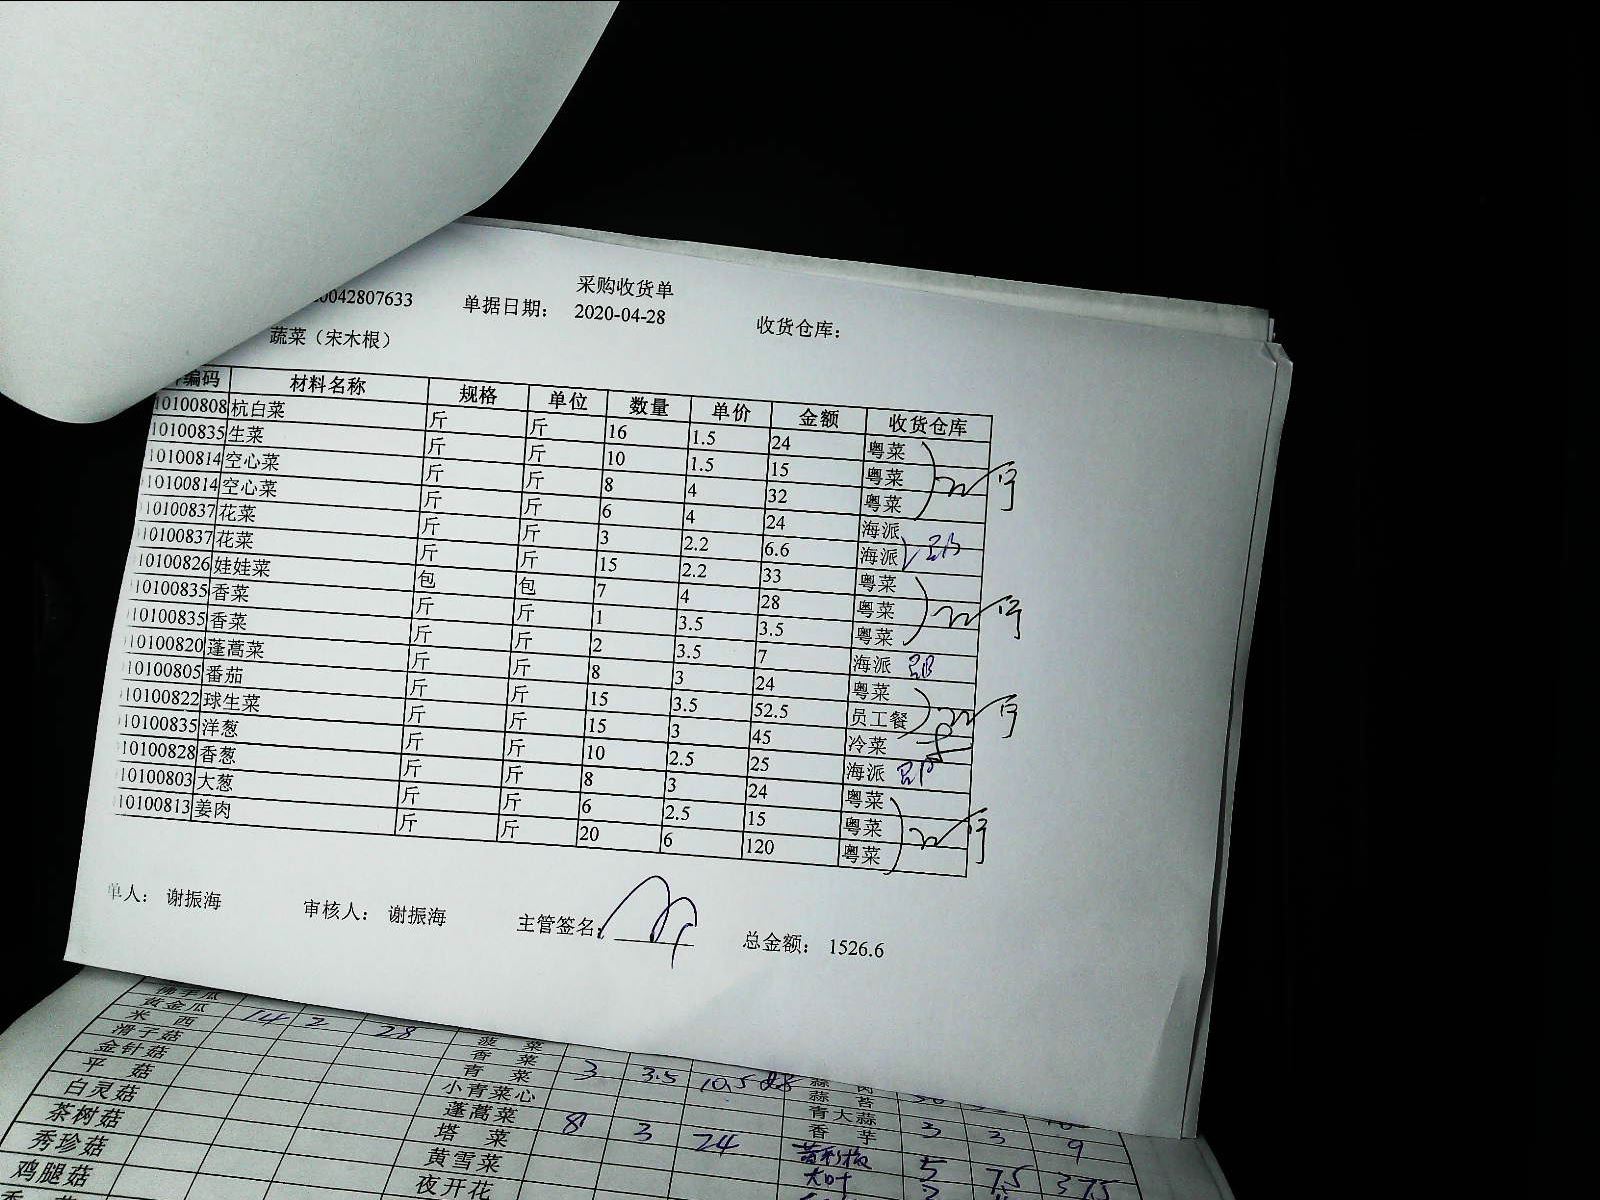 采购收货单
0042807633 单据日期： 2020-04-28 收货仓库：
蔬菜（宋木根）
编码 材料名称 规格 单位 数量 单价 金额 收货仓库
10100808 杭白菜 斤 斤 16 1.5 24 粤菜
10100835 生菜 斤 斤 10 1.5 15 粤菜
10100814 空心菜 斤 斤 8 4 32 粤菜
10100814 空心菜 斤 斤 6 4 24 海派
10100837 花菜 斤 斤 3 2.2 6.6 海派
10100837 花菜 斤 斤 15 2.2 33 粤菜
10100826 娃娃菜 包 包 7 4 28 粤菜
10100835 香菜 斤 斤 1 3.5 3.5 粤菜
10100835 香菜 斤 斤 2 3.5 7 海派
10100820 蓬蒿菜 斤 斤 8 3 24 粤菜
10100805 番茄 斤 斤 15 3.5 52.5 员工餐
10100822 球生菜 斤 斤 15 3 45 冷菜
10100835 洋葱 斤 斤 10 2.5 25 海派
10100828 香葱 斤 斤 8 3 24 粤菜
10100803 大葱 斤 斤 6 2.5 15 粤菜
10100813 姜肉 斤 斤 20 6 120 粤菜
单人： 谢振海 审核人： 谢振海 主管签名： 总金额： 1526.6
黄金瓜
米 西 14 2 28 菠 菜
滑子菇 香 菜
金针菇 青 菜 3 3.5 10.5
平 菇 小青菜心 蒜 苔
白灵菇 蓬蒿菜 8 3 24 青大蒜
茶树菇 塔 菜 香 芋 3 3 9
秀珍菇 黄雪菜 5 7.5 37.5
鸡腿菇 夜开花 大叶